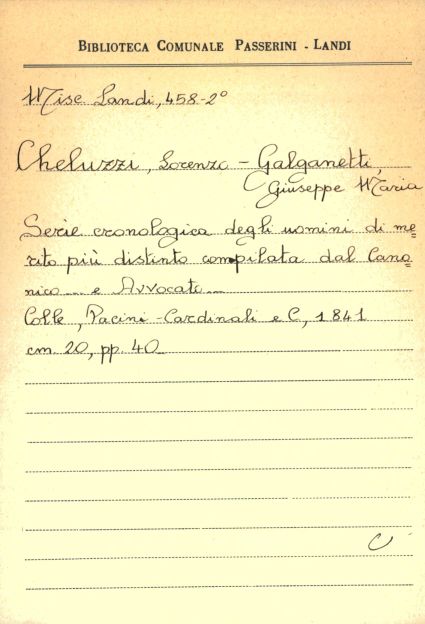 BIBLIOTECA COMUNALE PASSERINI - LANDI
Misc Landi, 458-2°
Cheluzzi, Lorenzo - Galganetti,
Giuseppe Maria
Serie cronologica degli uomini di me=
rito più distinto compilata dal Cano=
nico ... e Avvocato ...
Colle, Pacini - Cardinali e C, 1841
cm. 20, pp. 40